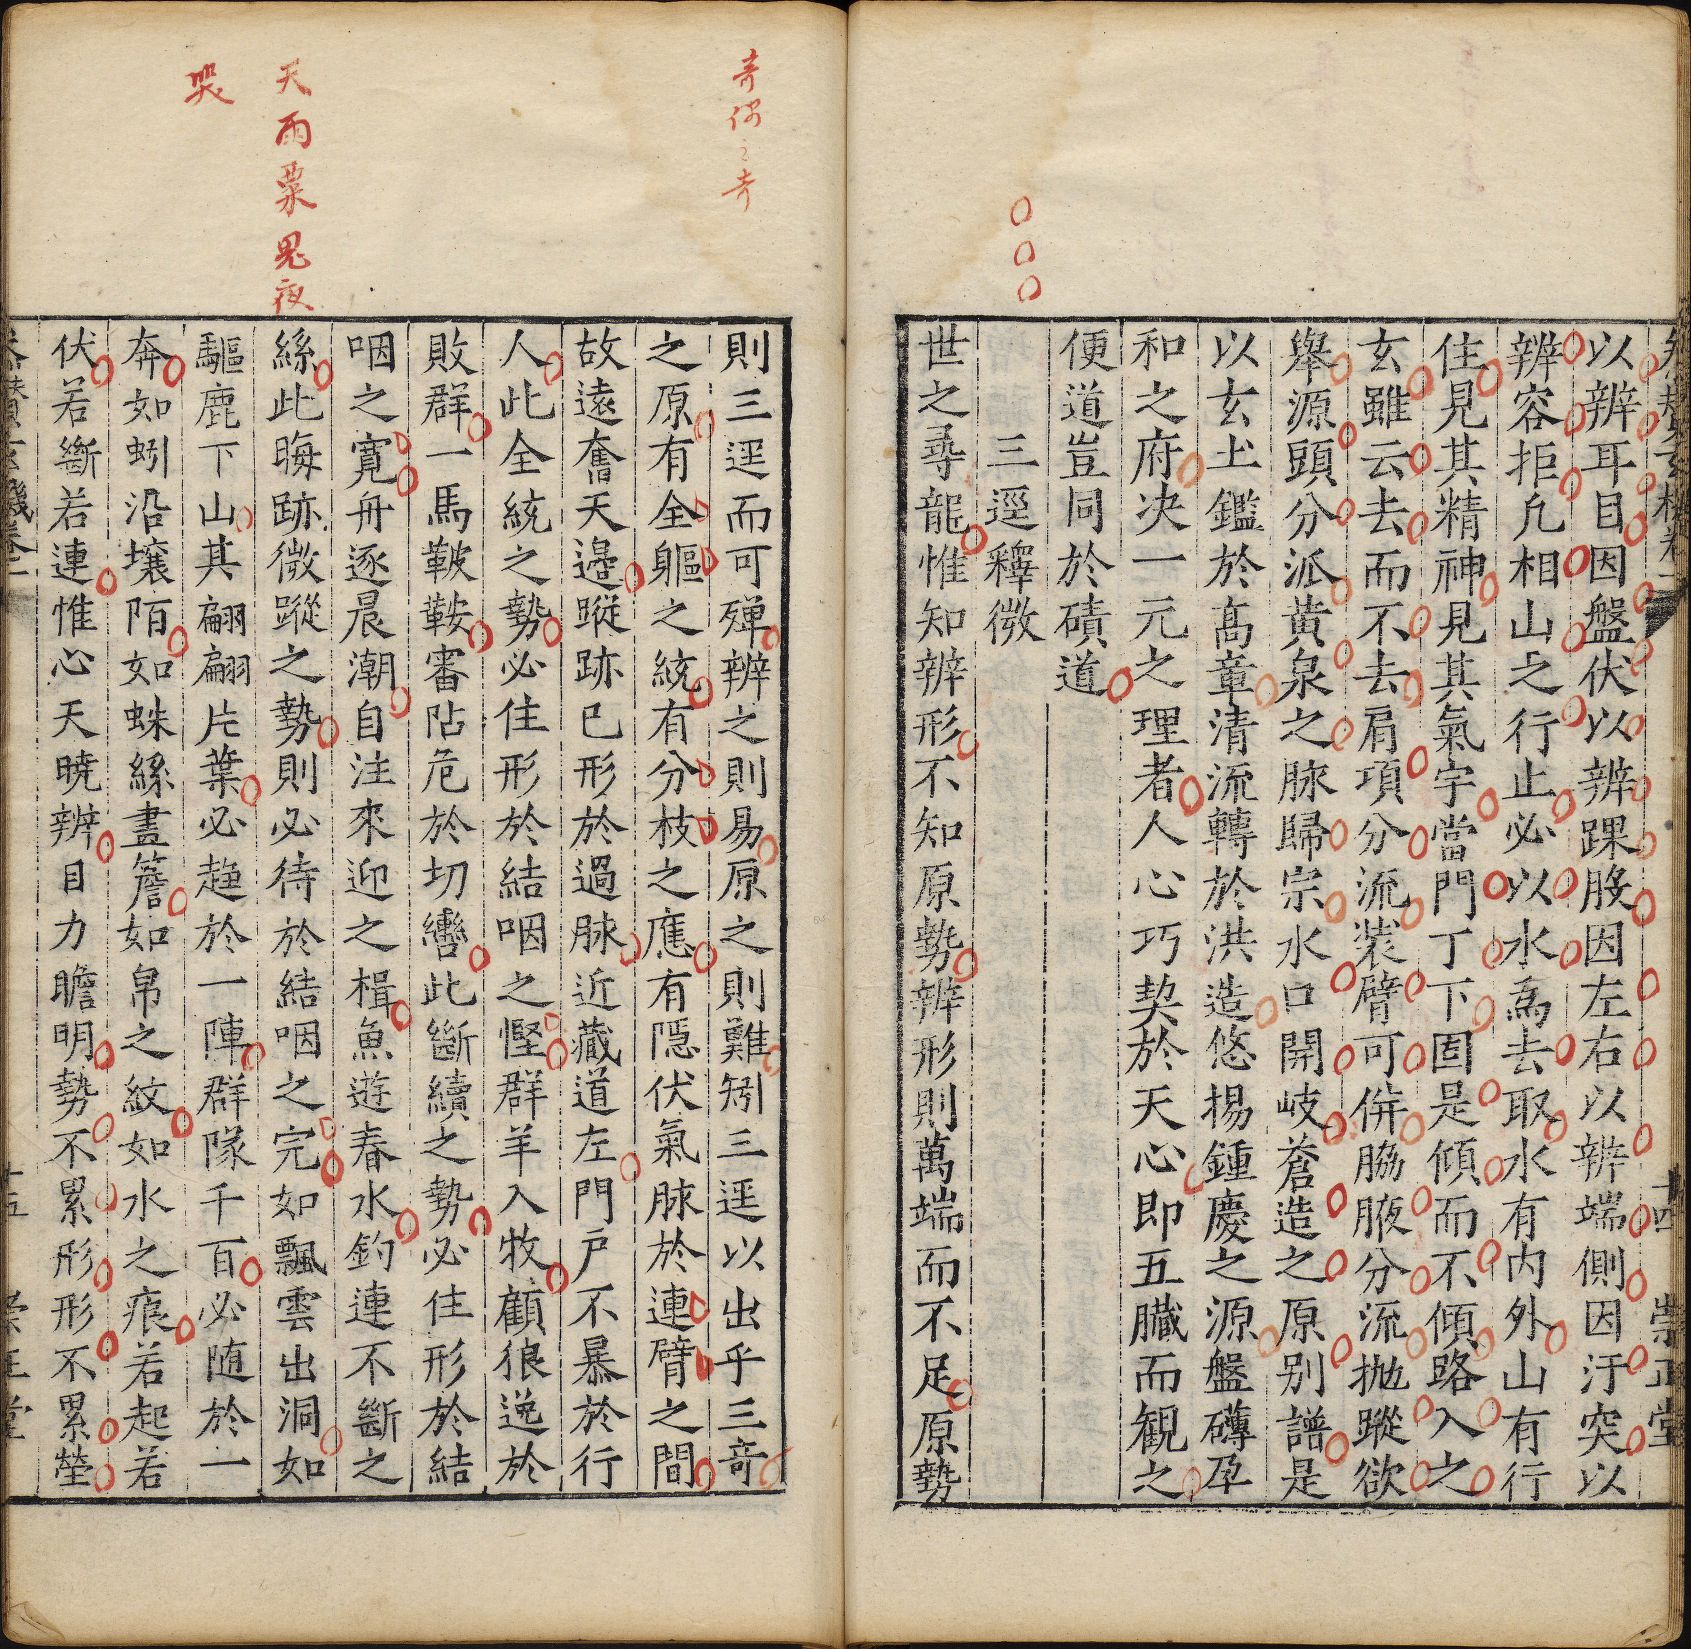 十四
崇正堂
以辨耳目因盤伏以辨踝股因左右以辨端側因汙突以
辨容拒凢相山之行止必以水為去取水有内外山有行
住見其精神見其氣宇當門丁下固是傾而不傾路入之
玄雖云去而不去肩項分流裝臂可倂脇腋分流抛蹤欲
舉源頭分派黄泉之脉歸宗水口開岐蒼造之原別譜是
以玄上鑑於髙童清流轉於洪造悠揚鍾慶之源盤礴孕
和之府决一元之理者人心巧契於天心即五臟而観之
便道豈同於磧道
三逕釋微
世之尋龍惟知辨形不知原勢辨形則萬端而不足原勢
奇偶之奇
則三逕而可殫辨之則易原之則難矧三逕以出乎三竒
之原有全軀之統有分枝之應有隠伏氣脉於連臂之間
故遠奮天邉蹤跡已形於過脉近藏道左門戸不暴於行
人此全統之勢必住形於結咽之慳群羊入牧顧狼逸於
敗群一馬鞁鞍審阽危於切轡此斷續之勢必住形於結
咽之寛舟逐晨潮自注來迎之楫魚遊春水釣連不斷之
天雨粟鬼夜
哭
絲此晦跡微蹤之勢則必待於結咽之完如飄雲出洞如
驅鹿下山其翩翩片葉必趋於一陣群隊千百必随於一
奔如蚓沿壌陌如蛛絲畫簷如帛之紋如水之痕若起若
伏若斷若連惟心天暁辨目力瞻明勢不累形形不累塋
十五
崇正堂